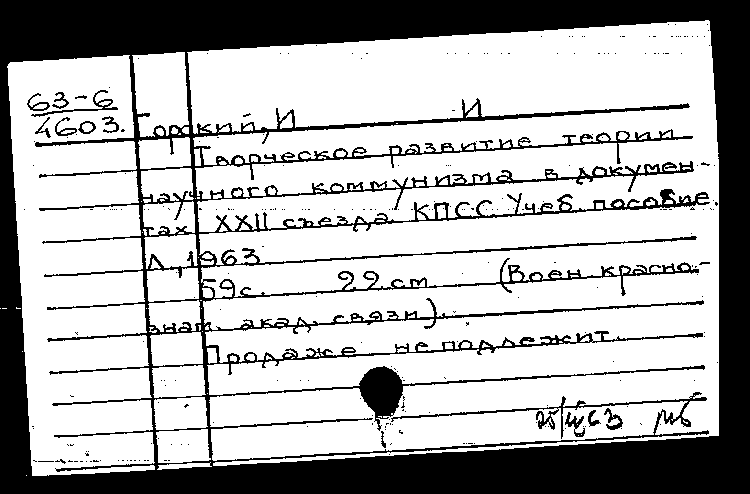 63-6
4603.
Горский, И И
Творческое развитие теории
научного коммунизма в докумен-
тах XXII съезда КПСС Учеб. пособие.
Л., 1963
59 с. 22 см (Воен красно-
знам. акад. связи).
Продаже не подлежит.
63